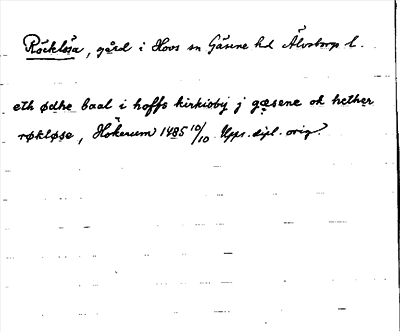 Röcklösa, gård i Hovs sn Gäsene hd Älvsborgs l.
eth ødhe baal i hoffs kirkioby j gæsene ok hether
røkløse, Hökerum 1485 10/10 Uppr. dipl. orig?